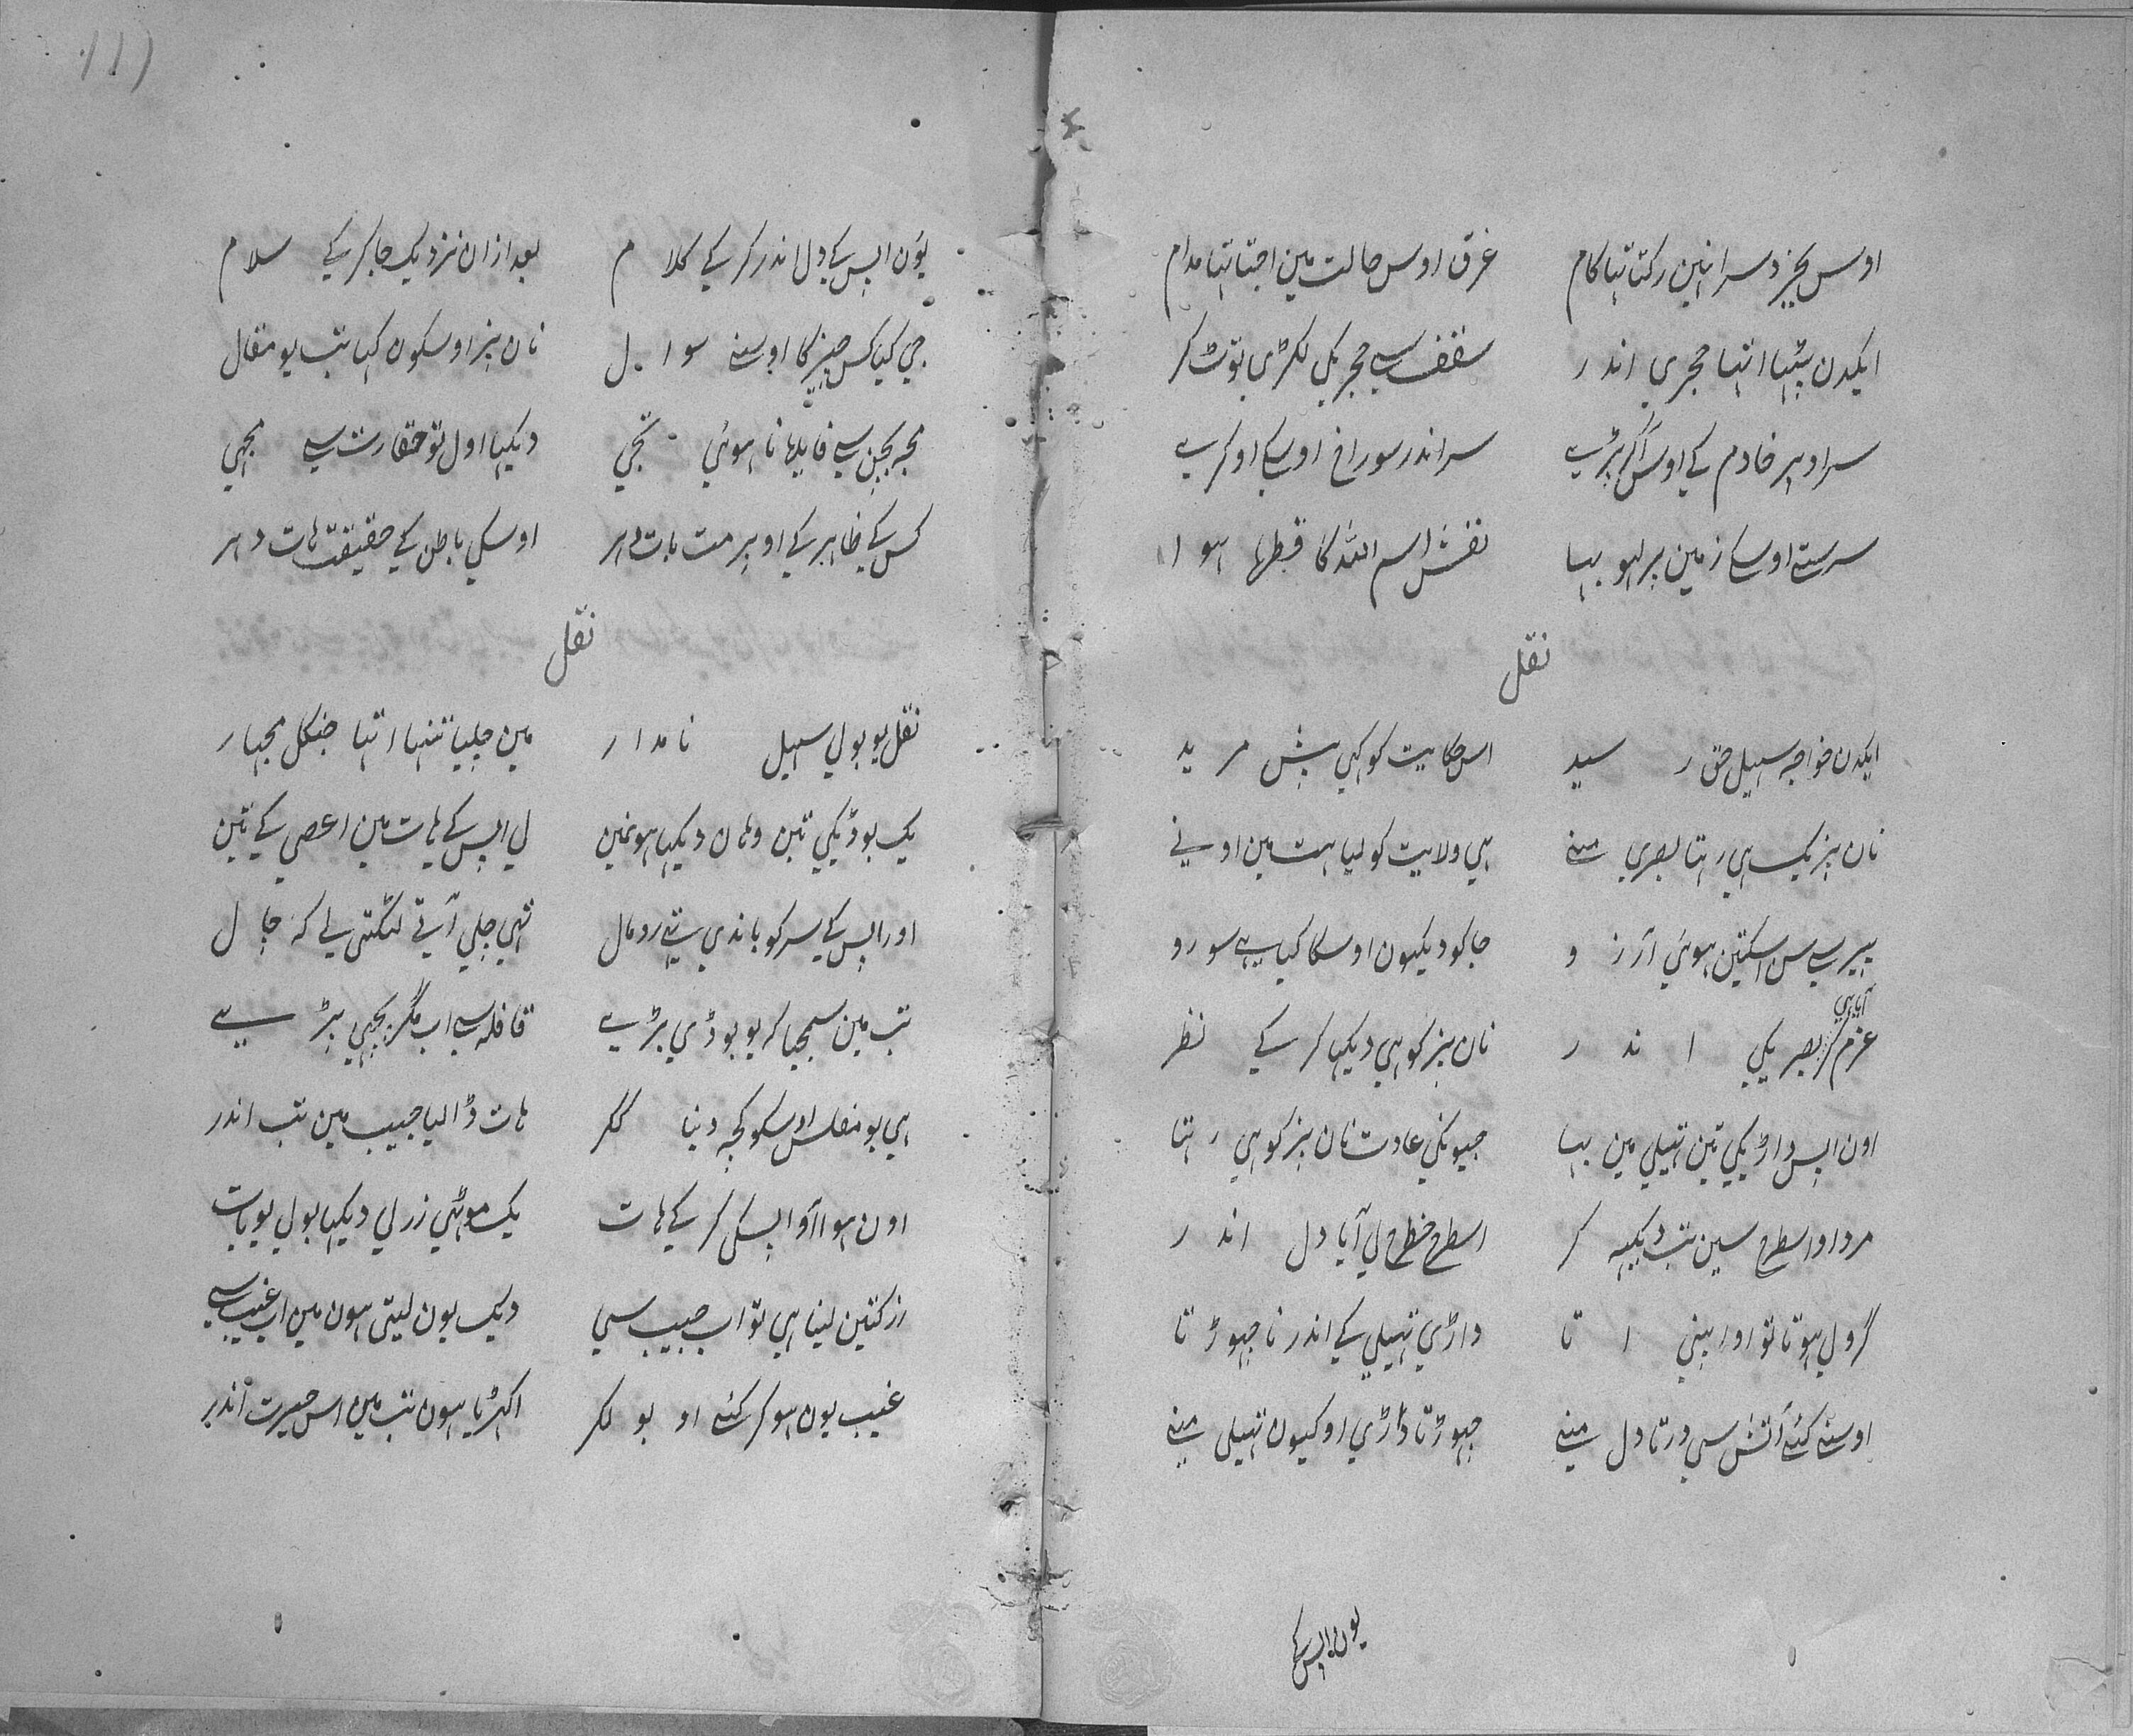 اوس بجز دسرا نہین رکتا تہا کام غرق اوس حالت مین اچتا تہا مدام
ایکدن بیٹہا اتہا حجری اندر سقف سے حجریکی لکڑی توٹ کر
سر اوپر خادم کے اوس آکر پڑے سر اندر سوراخ اوسکے او کرے
سرستے اوسکے زمین پر لہو بہا نقش اسم اللہ کا قطرہا ہوا
نقل
ایکدن خواجہ سہیل حق رسید اس حکایت کو کہی پیش مرید
نان پز یک ہی رہتا بصری منے ہی ولایت کو لیا ہت مین اونے
پیر سے سن اسکتین ہوئی آرزو جاکو دیکہون اوسکا کیا ہے سو رو
عزم کر بصریکی آیا ہی اندر نان پز کو ہی دیکہا کرکے نظر
اون اپس داڑیکے تین تہیلی مین بہا جیونکی عادت نان پز کو ہی رہتا
مرد او اسطرح سین تب دیکہہ کر اسطرح خطرح لی آیا دل اندر
گر ولی ہوتا تو او اپنی اتا داڑی تہیلی کے اندر نا چہوڑتا
اوسنے کئے آتش سی درتا دل منے چہوڑتا داڑی او کیون تہیلی منے
یون اپس کے
یون اپس کے دل اندر کرکے کلام بعد ازان نزدیک جاکر کے سلام
جی کیا کس چیز کا اوسنے سوال نان پز اوسکون کہا تب یو مقال
مجہ بچن سے فایدہا نا ہوئی تجی دیکہا اول تو حقارت سے مجہی
کس کے ظاہر کے اوپر مت بات دہر اوسکی باطن کے حقیقت ہات دہر
نقل
نقل یو بولی سہیل نامدار مین چلیا تنہا اتہا جنگل مجہار
یک بوڈیکی تین وہان دیکہا ہونمین لی اپس کے ہات مین اعصی کے تین
اور اپس کے سر کو باندی تہی رومال تہی چلی آتی لنگتی لے کہ چال
تب مین سمجہا کر یو بوڈی پڑے قافلہ سے اب مگر پیچہی پڑے
ہی یو مفلس اوسکو کچہ دنیا کر ہات ڈالیا جیب مین تب اندر
اون ہوا او اپسکی کرکے ہات یک موٹہی زر لی دیکہا بولی یو بات
زر کتین لینا ہی تو اب جیب سی دیک یون لیتی ہون مین اب غیب سے
غیب یون ہو کر گئے او بو لکر اکڑیا ہون تب مین اس حیرت اندر